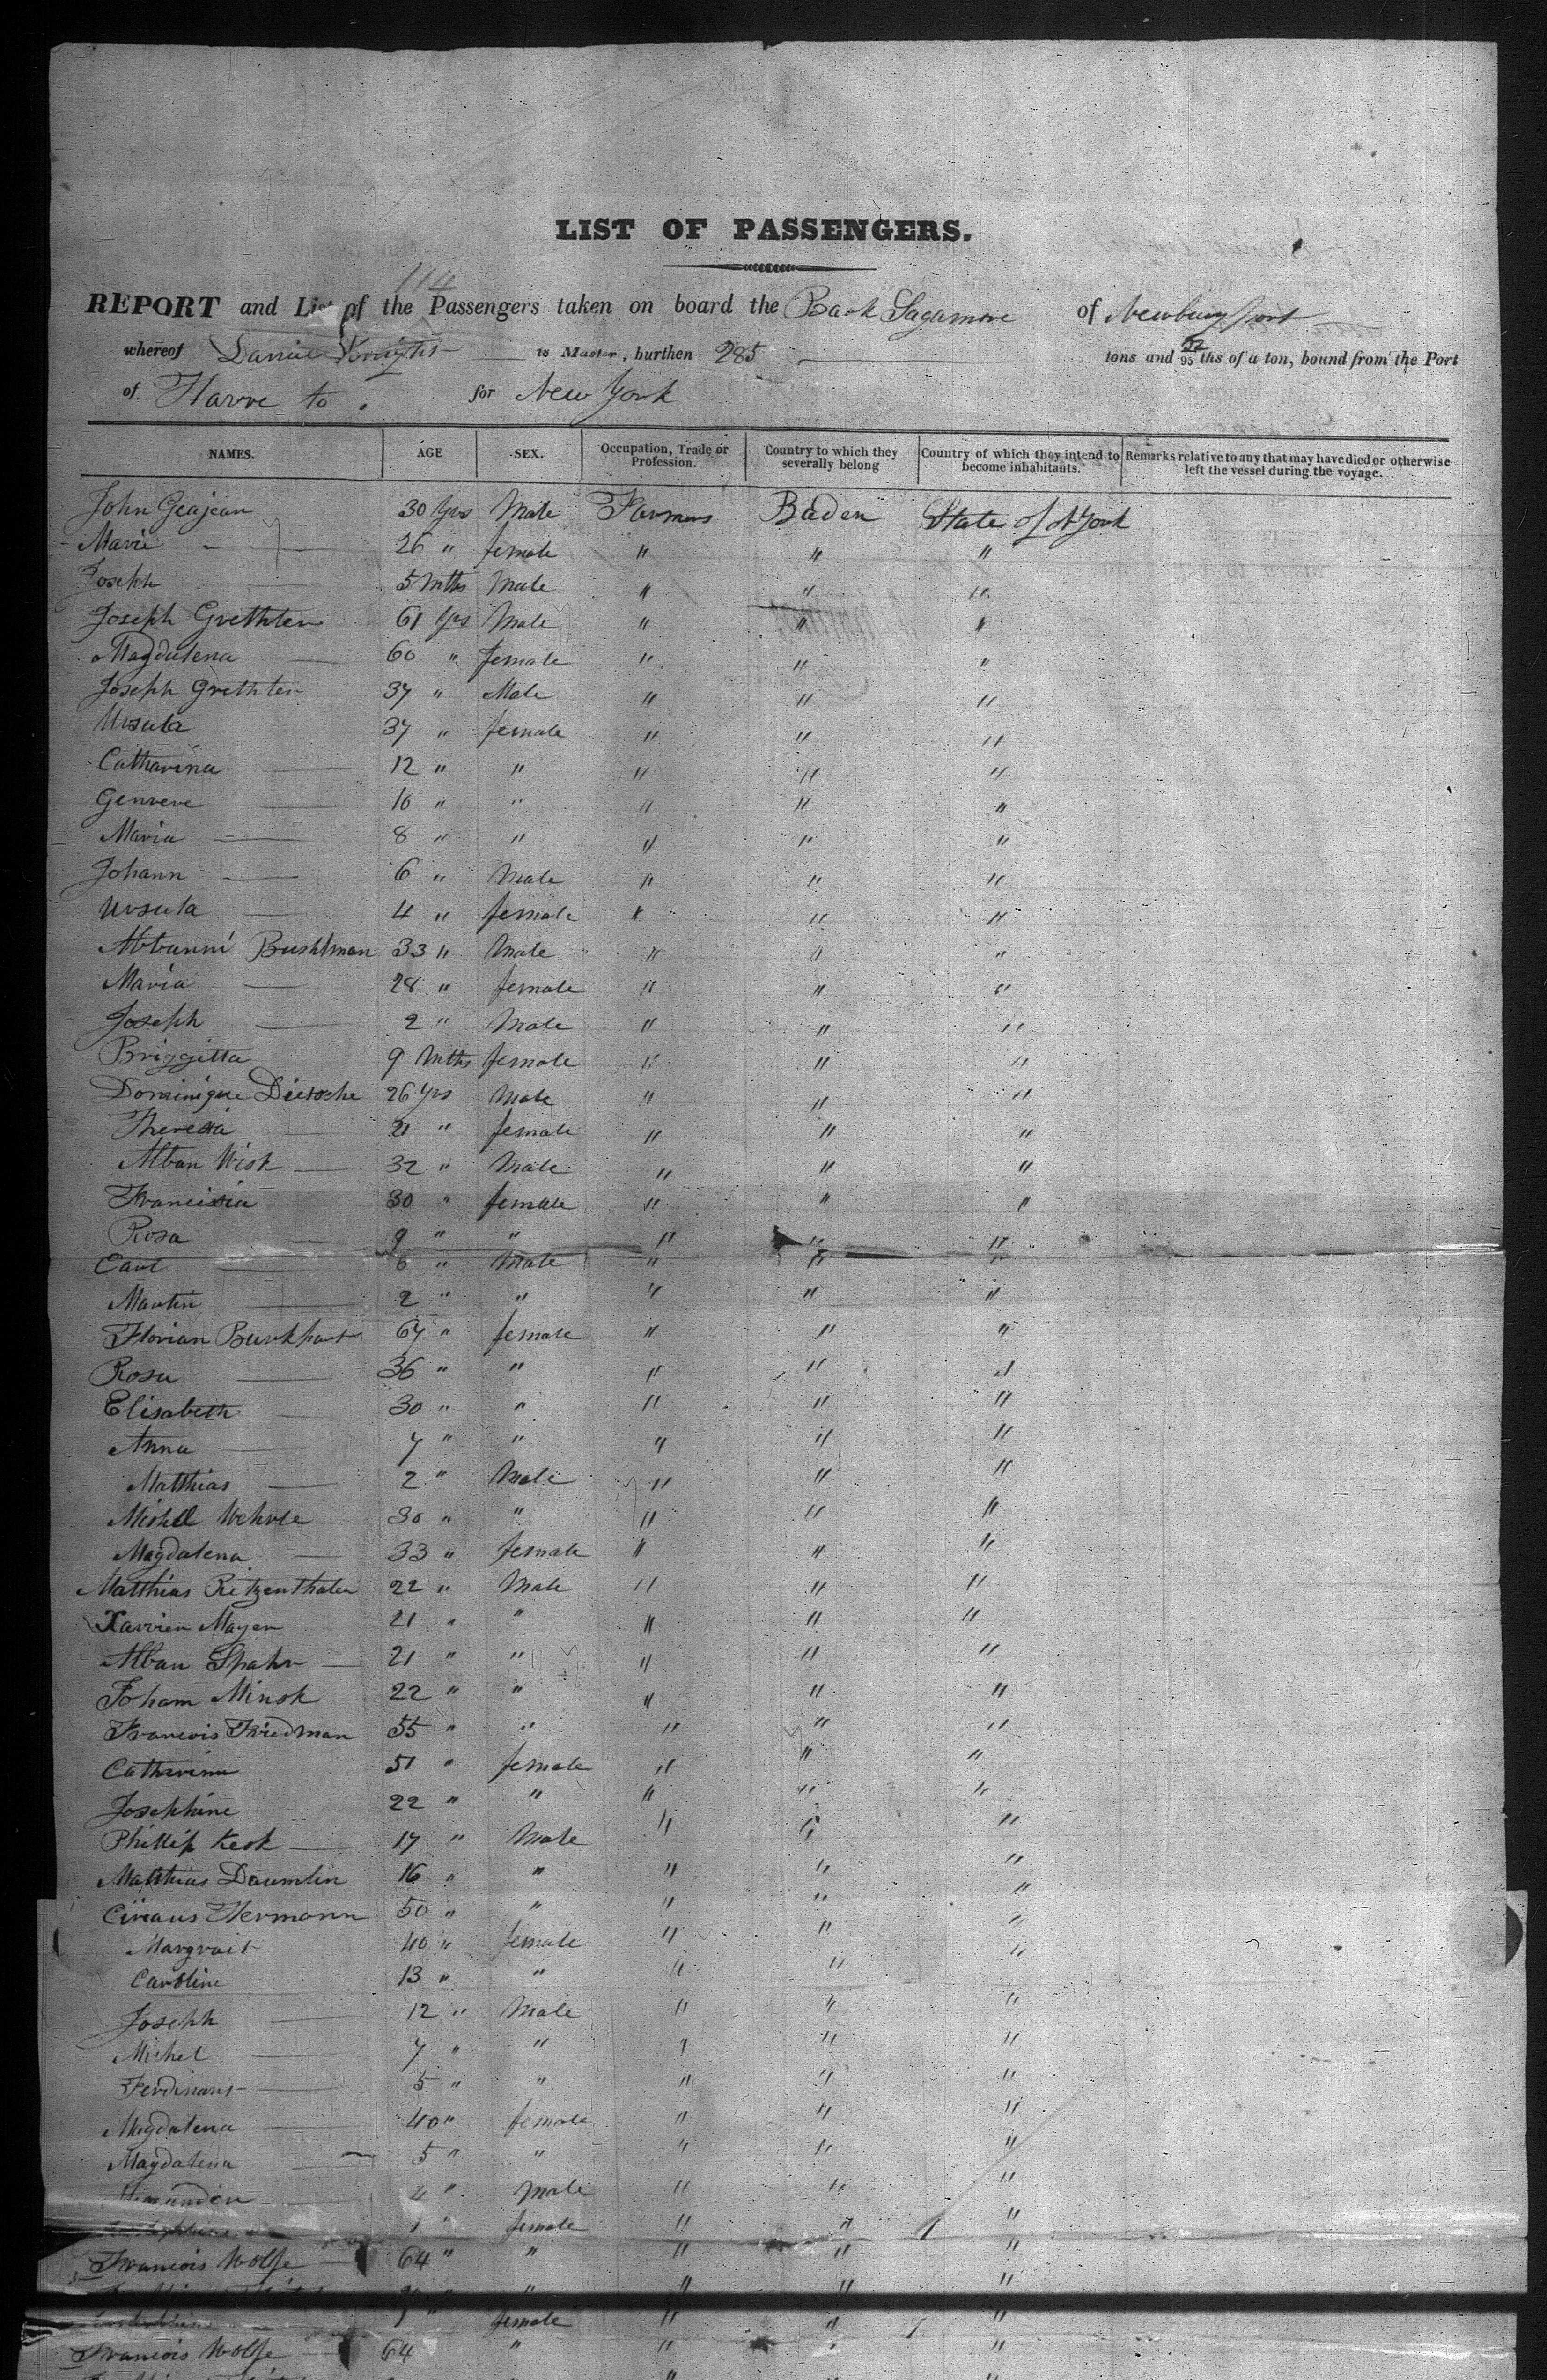 LIST OF PASSENGERS.
114
REPORT and List of the Passengers taken on board the Bark Sagamore of Newburyport
whereof Knight is Master, burthen 285 tons and 52/95 ths of a ton, bound from the Port
of Havre to . for New York
NAMES. AGE SEX. Occupation, Trade or Profession. Country to which they severally belong Country of which they intend to become inhabitants. Remarks relative to any that may have died or otherwise left the vessel during the voyage.
John Geajean 30 Yrs Male Farmers Baden State of N York
Marie — 26 " female " " "
Joseph — 5 Mths Male " " "
Joseph Grethter 61 Yrs Male " " "
Magdalena — 60 " female " " "
Joseph Grethter 37 " Male " " "
Ursula 37 " female " " "
Catharina — 12 " " " " "
Genveve — 10 " " " " "
Maria — 8 " " " " "
Johann — 6 " Male " " "
Ursula — 4 " female " " "
Bushlman 33 " Male " " "
Maria — 28 " female " " "
Joseph — 2 " Male " " "
Briggitta 9 Mths female " " "
Dominique Dietsche 26 Yrs Male " " "
Theresia — 21 " female " " "
Alban Wisk — 32 " Male " " "
Francisia 30 " female " " "
Rosa — 9 " " " " "
Carl — 6 " Male " " "
Martin — 2 " " " " "
Florian Burkhart 67 " female " " "
Rosa — 36 " " " " "
Elisabeth — 30 " " " " "
Anna — 7 " " " " "
Matthias — 2 " Male " " "
Michel Wehrle 30 " " " " "
Magdalena — 33 " female " " "
Matthias Ritzenthaler 22 " Male " " "
Xavrier Mayer 21 " " " " "
Alban Spahr — 21 " " " " "
Joham Minsk 22 " " " " "
Francois Friedman 55 " " " " "
Catharina 51 " female " " "
Josephine 22 " " " " "
Phillip Kesk — 17 " Male " " "
Matthias Daumlin 16 " " " " "
Ciriacus Hermann 50 " " " " "
Margrait 40 " female " " "
Caroline 13 " " " " "
Joseph — 12 " Male " " "
Michel — 7 " " " " "
Ferdinant — 5 " " " " "
Magdalena — 40 " female " " "
Magdalena — 5 " " " " "
4 " Male " " "
1 " female " " "
Francois Wolfe — 64 " " " " "
" " " " "
1 " female " " "
Francois Wolfe — 64 " " " "